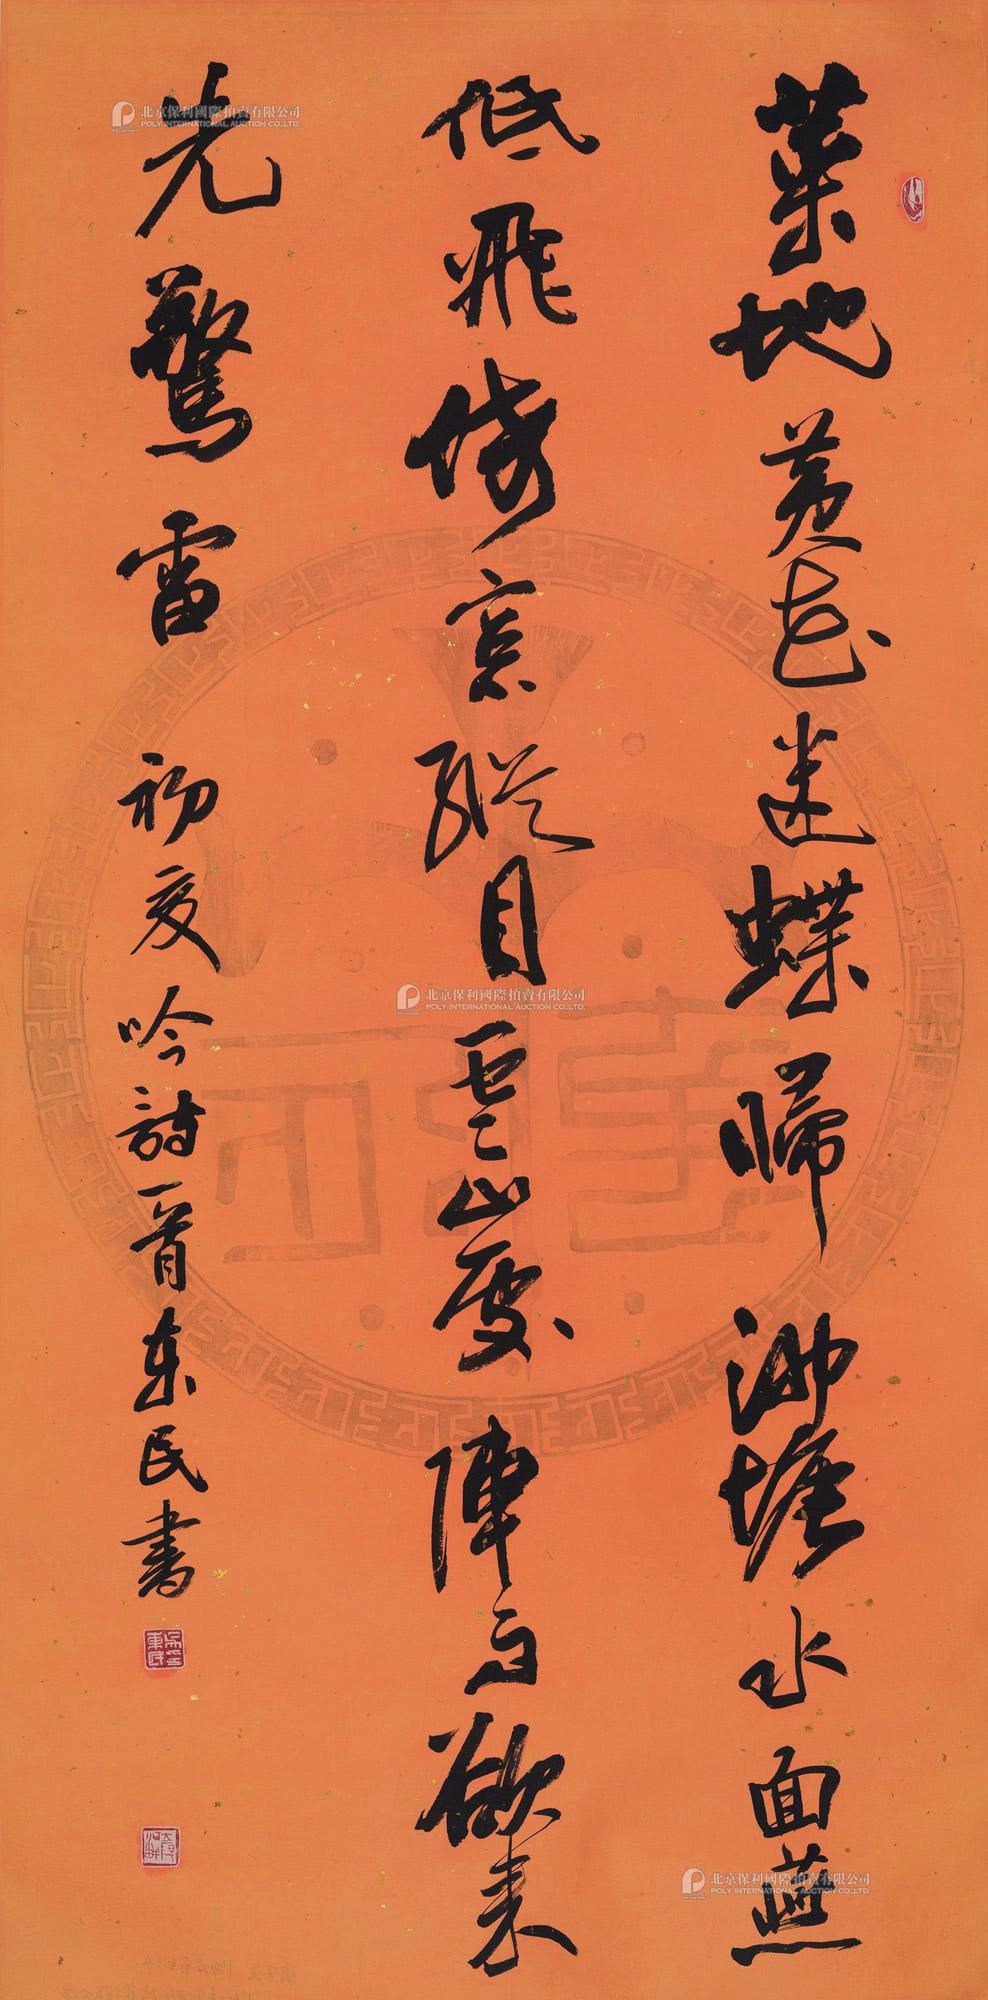 菜地黄花迷蝶歸湖塘水面燕
低飛倚窓縱目雲山處陣雨欲来
光驚雷
初夏吟詩一首東民書
北京保利國際拍賣有限公司
POLY INTERNATIONAL AUCTION CO.,LTD.
北京保利國際拍賣有限公司
POLY INTERNATIONAL AUCTION CO.,LTD.
北京保利國際拍賣有限公司
POLY INTERNATIONAL AUCTION CO.,LTD.